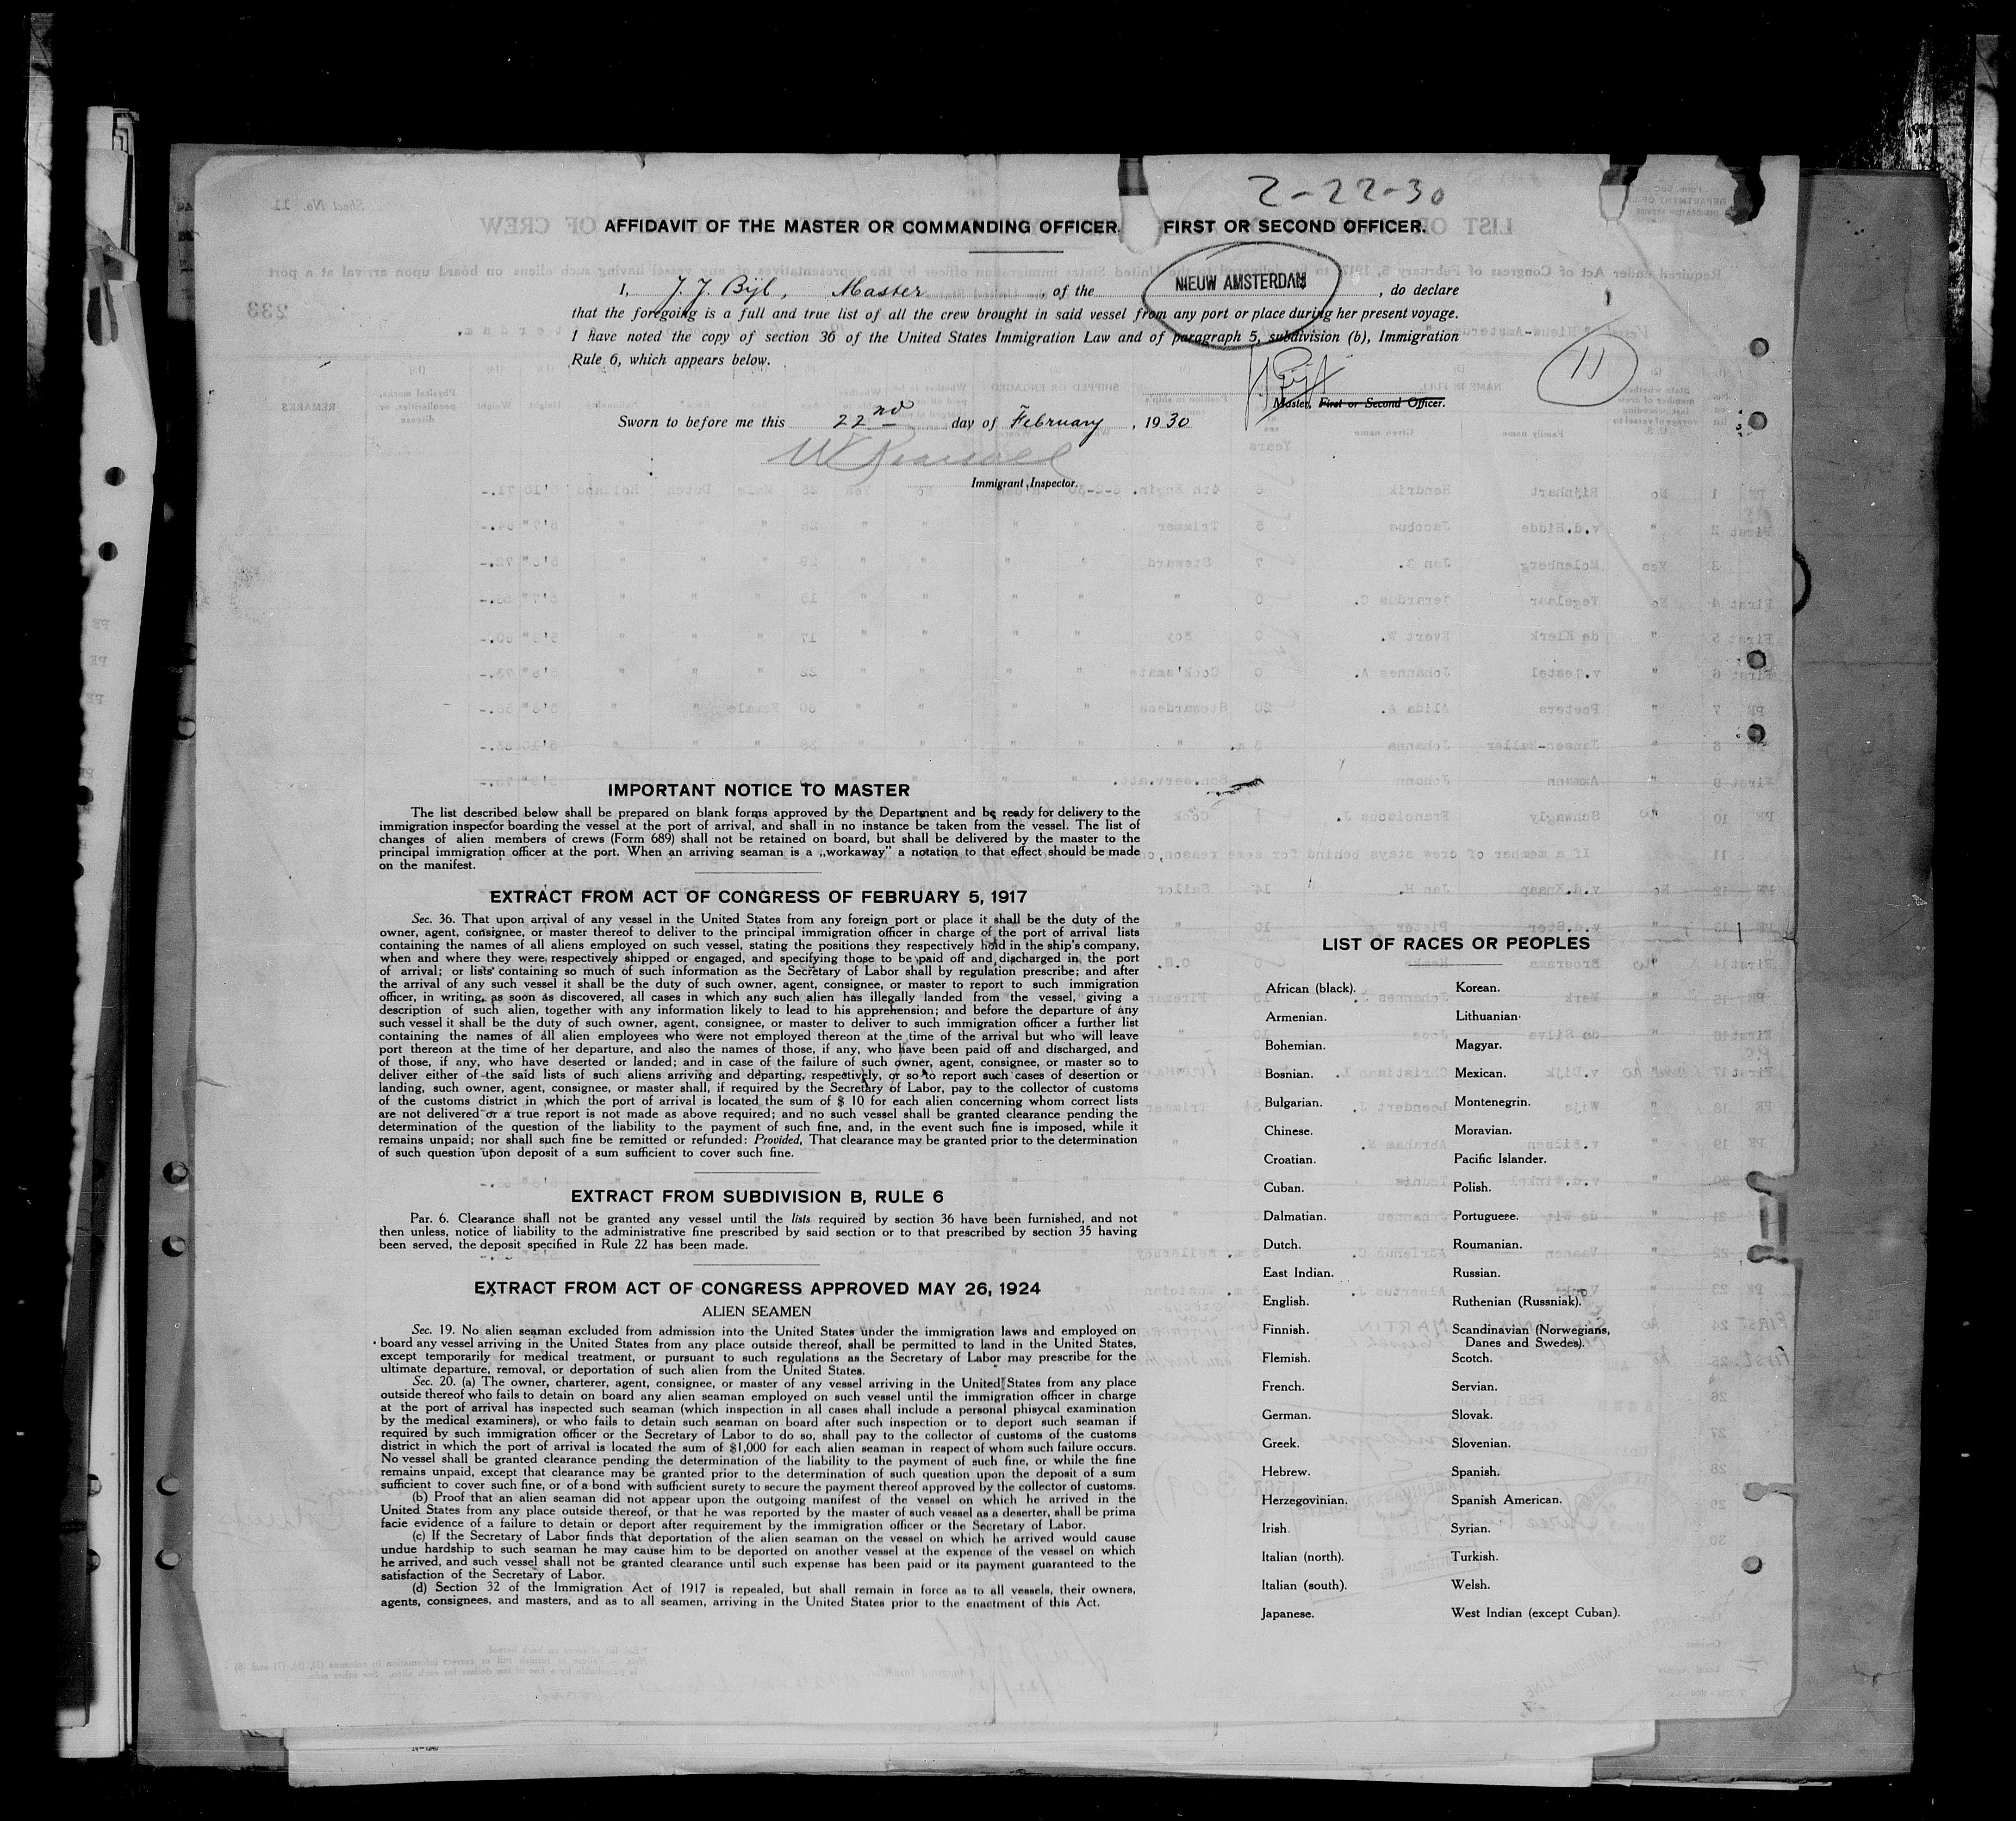 2-22-30
AFFIDAVIT OF THE MASTER OR COMMANDING OFFICER, FIRST OR SECOND OFFICER.
I, J. J. Bijl, Master, of the NIEUW AMSTERDAM, do declare
that the foregoing is a full and true list of all the crew brought in said vessel from any port or place during her present voyage.
I have noted the copy of section 36 of the United States Immigration Law and of paragraph 5, subdivision (b), Immigration
Rule 6, which appears below.
11
Master, First or Second Officer.
Sworn to before me this 22nd day of February, 1930
Immigrant Inspector.
IMPORTANT NOTICE TO MASTER
The list described below shall be prepared on blank forms approved by the Department and be ready for delivery to the
immigration inspector boarding the vessel at the port of arrival, and shall in no instance be taken from the vessel. The list of
changes of alien members of crews (Form 689) shall not be retained on board, but shall be delivered by the master to the
principal immigration officer at the port. When an arriving seaman is a „workaway" a notation to that effect should be made
on the manifest.
EXTRACT FROM ACT OF CONGRESS OF FEBRUARY 5, 1917
Sec. 36. That upon arrival of any vessel in the United States from any foreign port or place it shall be the duty of the
owner, agent, consignee, or master thereof to deliver to the principal immigration officer in charge of the port of arrival lists
containing the names of all aliens employed on such vessel, stating the positions they respectively hold in the ship's company,
when and where they were respectively shipped or engaged, and specifying those to be paid off and discharged in the port
of arrival; or lists containing so much of such information as the Secretary of Labor shall by regulation prescribe; and after
the arrival of any such vessel it shall be the duty of such owner, agent, consignee, or master to report to such immigration
officer, in writing, as soon as discovered, all cases in which any such alien has illegally landed from the vessel, giving a
description of such alien, together with any information likely to lead to his apprehension; and before the departure of any
such vessel it shall be the duty of such owner, agent, consignee, or master to deliver to such immigration officer a further list
containing the names of all alien employees who were not employed thereon at the time of the arrival but who will leave
port thereon at the time of her departure, and also the names of those, if any, who have been paid off and discharged, and
of those, if any, who have deserted or landed; and in case of the failure of such owner, agent, consignee, or master so to
deliver either of the said lists of such aliens arriving and departing, respectively, or so to report such cases of desertion or
landing, such owner, agent, consignee, or master shall, if required by the Secretary of Labor, pay to the collector of customs
of the customs district in which the port of arrival is located the sum of $ 10 for each alien concerning whom correct lists
are not delivered or a true report is not made as above required; and no such vessel shall be granted clearance pending the
determination of the question of the liability to the payment of such fine, and, in the event such fine is imposed, while it
remains unpaid; nor shall such fine be remitted or refunded: Provided, That clearance may be granted prior to the determination
of such question upon deposit of a sum sufficient to cover such fine.
EXTRACT FROM SUBDIVISION B, RULE 6
Par. 6. Clearance shall not be granted any vessel until the lists required by section 36 have been furnished, and not
then unless, notice of liability to the administrative fine prescribed by said section or to that prescribed by section 35 having
been served, the deposit specified in Rule 22 has been made.
EXTRACT FROM ACT OF CONGRESS APPROVED MAY 26, 1924
ALIEN SEAMEN
Sec. 19. No alien seaman excluded from admission into the United States under the immigration laws and employed on
board any vessel arriving in the United States from any place outside thereof, shall be permitted to land in the United States,
except temporarily for medical treatment, or pursuant to such regulations as the Secretary of Labor may prescribe for the
ultimate departure, removal, or deportation of such alien from the United States.
Sec. 20. (a) The owner, charterer, agent, consignee, or master of any vessel arriving in the United States from any place
outside thereof who fails to detain on board any alien seaman employed on such vessel until the immigration officer in charge
at the port of arrival has inspected such seaman (which inspection in all cases shall include a personal phisycal examination
by the medical examiners), or who fails to detain such seaman on board after such inspection or to deport such seaman if
required by such immigration officer or the Secretary of Labor to do so, shall pay to the collector of customs of the customs
district in which the port of arrival is located the sum of $1,000 for each alien seaman in respect of whom such failure occurs.
No vessel shall be granted clearance pending the determination of the liability to the payment of such fine, or while the fine
remains unpaid, except that clearance may be granted prior to the determination of such question upon the deposit of a sum
sufficient to cover such fine, or of a bond with sufficient surety to secure the payment thereof approved by the collector of customs.
(b) Proof that an alien seaman did not appear upon the outgoing manifest of the vessel on which he arrived in the
United States from any place outside thereof, or that he was reported by the master of such vessel as a deserter, shall be prima
facie evidence of a failure to detain or deport after requirement by the immigration officer or the Secretary of Labor.
(c) If the Secretary of Labor finds that deportation of the alien seaman on the vessel on which he arrived would cause
undue hardship to such seaman he may cause him to be deported on another vessel at the expence of the vessel on which
he arrived, and such vessel shall not be granted clearance until such expense has been paid or its payment guaranteed to the
satisfaction of the Secretary of Labor.
(d) Section 32 of the Immigration Act of 1917 is repealed, but shall remain in force as to all vessels, their owners,
agents, consignees, and masters, and as to all seamen, arriving in the United States prior to the enactment of this Act.
LIST OF RACES OR PEOPLES
African (black). Korean.
Armenian. Lithuanian.
Bohemian. Magyar.
Bosnian. Mexican.
Bulgarian. Montenegrin.
Chinese. Moravian.
Croatian. Pacific Islander.
Cuban. Polish.
Dalmatian. Portuguese.
Dutch. Roumanian.
East Indian. Russian.
English. Ruthenian (Russniak).
Finnish. Scandinavian (Norwegians,
Danes and Swedes).
Flemish. Scotch.
French. Servian.
German. Slovak.
Greek. Slovenian.
Hebrew. Spanish.
Herzegovinian. Spanish American.
Irish. Syrian.
Italian (north). Turkish.
Italian (south). Welsh.
Japanese. West Indian (except Cuban).